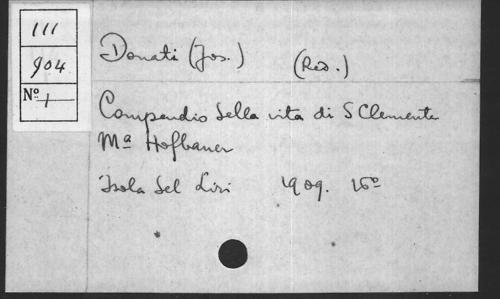 111
904
Nº 1
Donati (Jos.) (Red.)
Compendio della vita di S Clemente
Mª Hofbauer
Isola del Liri 1909. 16º